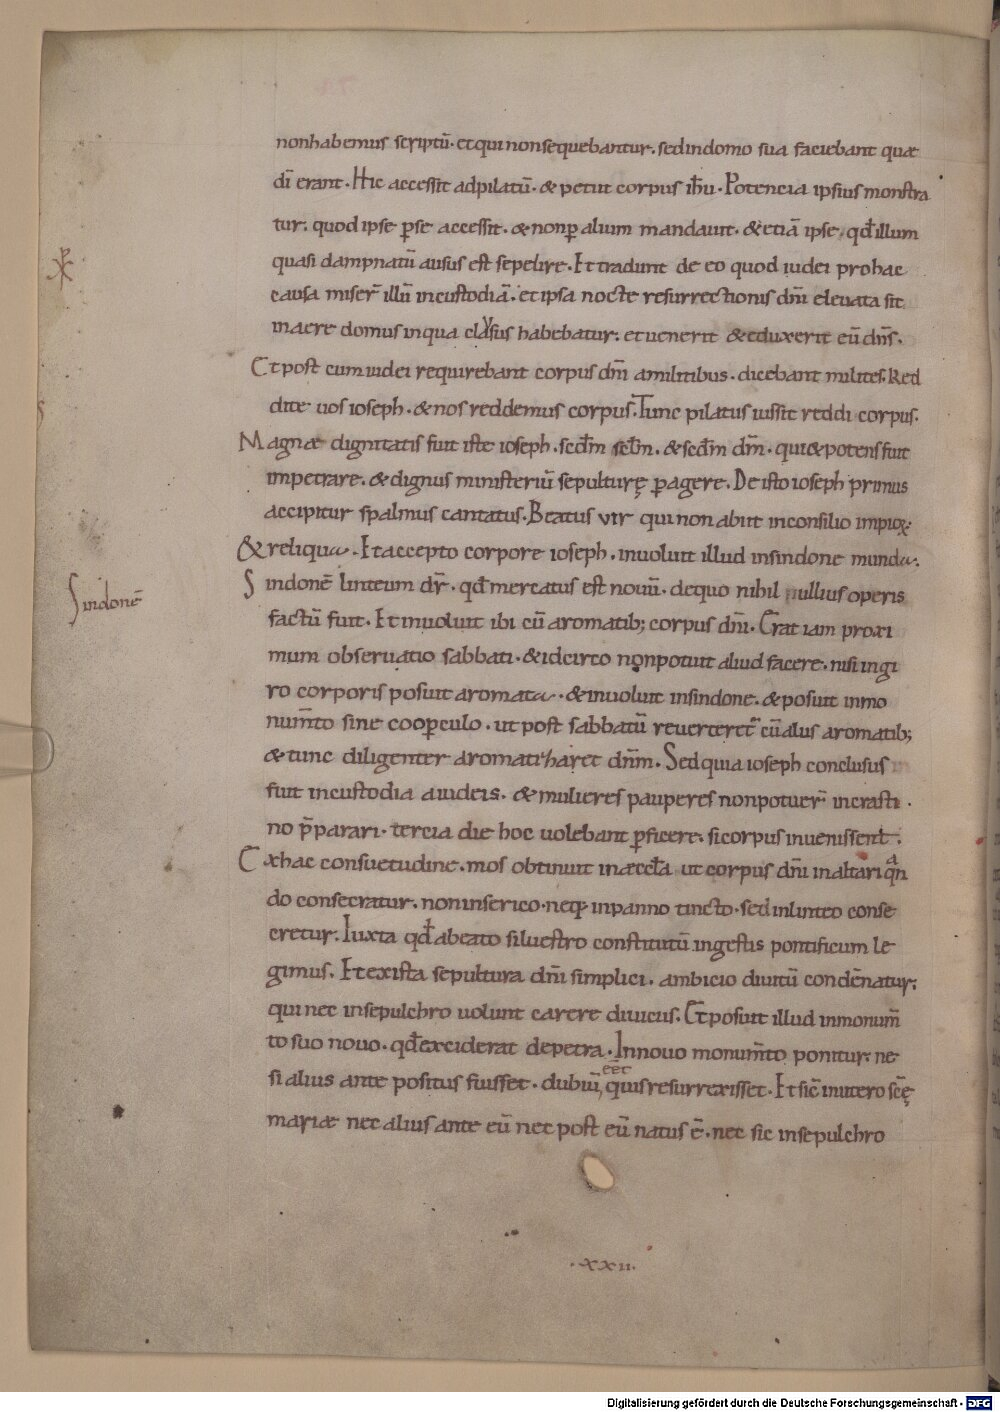 non habemus scriptū· et qui non sequebantur. sed in domo sua faciebant quæ
dī erant. Hic accessit ad pilatū· & petiit corpus ihū· Potencia ipsius monstra
tur. quod ipse p̱ se accessit. & non p̱ alium mandauit. & etiā ipse, qđ illum
quasi dampnatū ausus est sepelire. Et tradunt de eo quod iudei pro hac
causa miser̄ illū in custodiā. et ipsa nocte resurrectionis dn̄i eleuata sit
in aere domus in qua clausus habebatur. et uenerit & eduxerit eū dn̄s.
Et post cum iudei requirebant corpus dn̄i a militibus. dicebant milites. Red
dite uos ioseph. & nos reddemus corpus. Tunc pilatus iussit reddi corpus.
Magnæ dignitatis fuit iste ioseph. secđm sctm̄. & secđm dm̄. qui & potens fuit
impetrare. & dignus ministeriū sepulturę p̱agere. De isto ioseph primus
accipitur spalmus cantatus. Beatus vir qui non abiit in consilio impioꝝ
& reliqua. Et accepto corpore ioseph. inuoluit illud in sindone munda.
Sindonē
Sindonē linteum dr̄. qđ mercatus est nouū. de quo nihil nullius operis
factū fuit. Et inuoluit ibi cū aromatib; corpus dn̄i. Erat iam proxi
mum obseruatio sabbati. & idcirco non potuit aliud facere. nisi in gi
ro corporis posuit aromata. & inuoluit in sindone. & posuit in mo
num̄to sine coop̱culo. ut post sabbatū reuerteret᷑ cū alus aromatib;
& tunc diligenter aromatiharet dn̄m. Sed quia ioseph conclusus
fuit in custodia a iudeis. & mulieres pauperes non potuer̄ in crasti
no p̄parari. tercia die hoc uolebant p̱ficere. si corpus inuenissent.
Ex hac consuetudine. mos obtinuit in æccła ut corpus dn̄i in altari qan
do consecratur. non in serico. neq; in panno tincto. sed in linteo conse
cretur. Iuxta qđ a beato siluestro constitutū in gestis pontificum le
gimus. Et ex ista sepultura dn̄i simplici. ambicio diuitū condēnatur.
qui nec in sepulchro uolunt carere diuicus. Et posuit illud in monum̄
to suo nouo. qđ exciderat de petra. In nouo monum̄to ponitur. ne
si alius ante positus fuisset. dubiū eēt, quis resurrexisset. Et sic in utero scę̄
mariæ nec alius ante eū nec post eū natus ē. nec sic in sepulchro
·xxii·
Digitalisierung gefördert durch die Deutsche Forschungsgemeinschaft - DFG